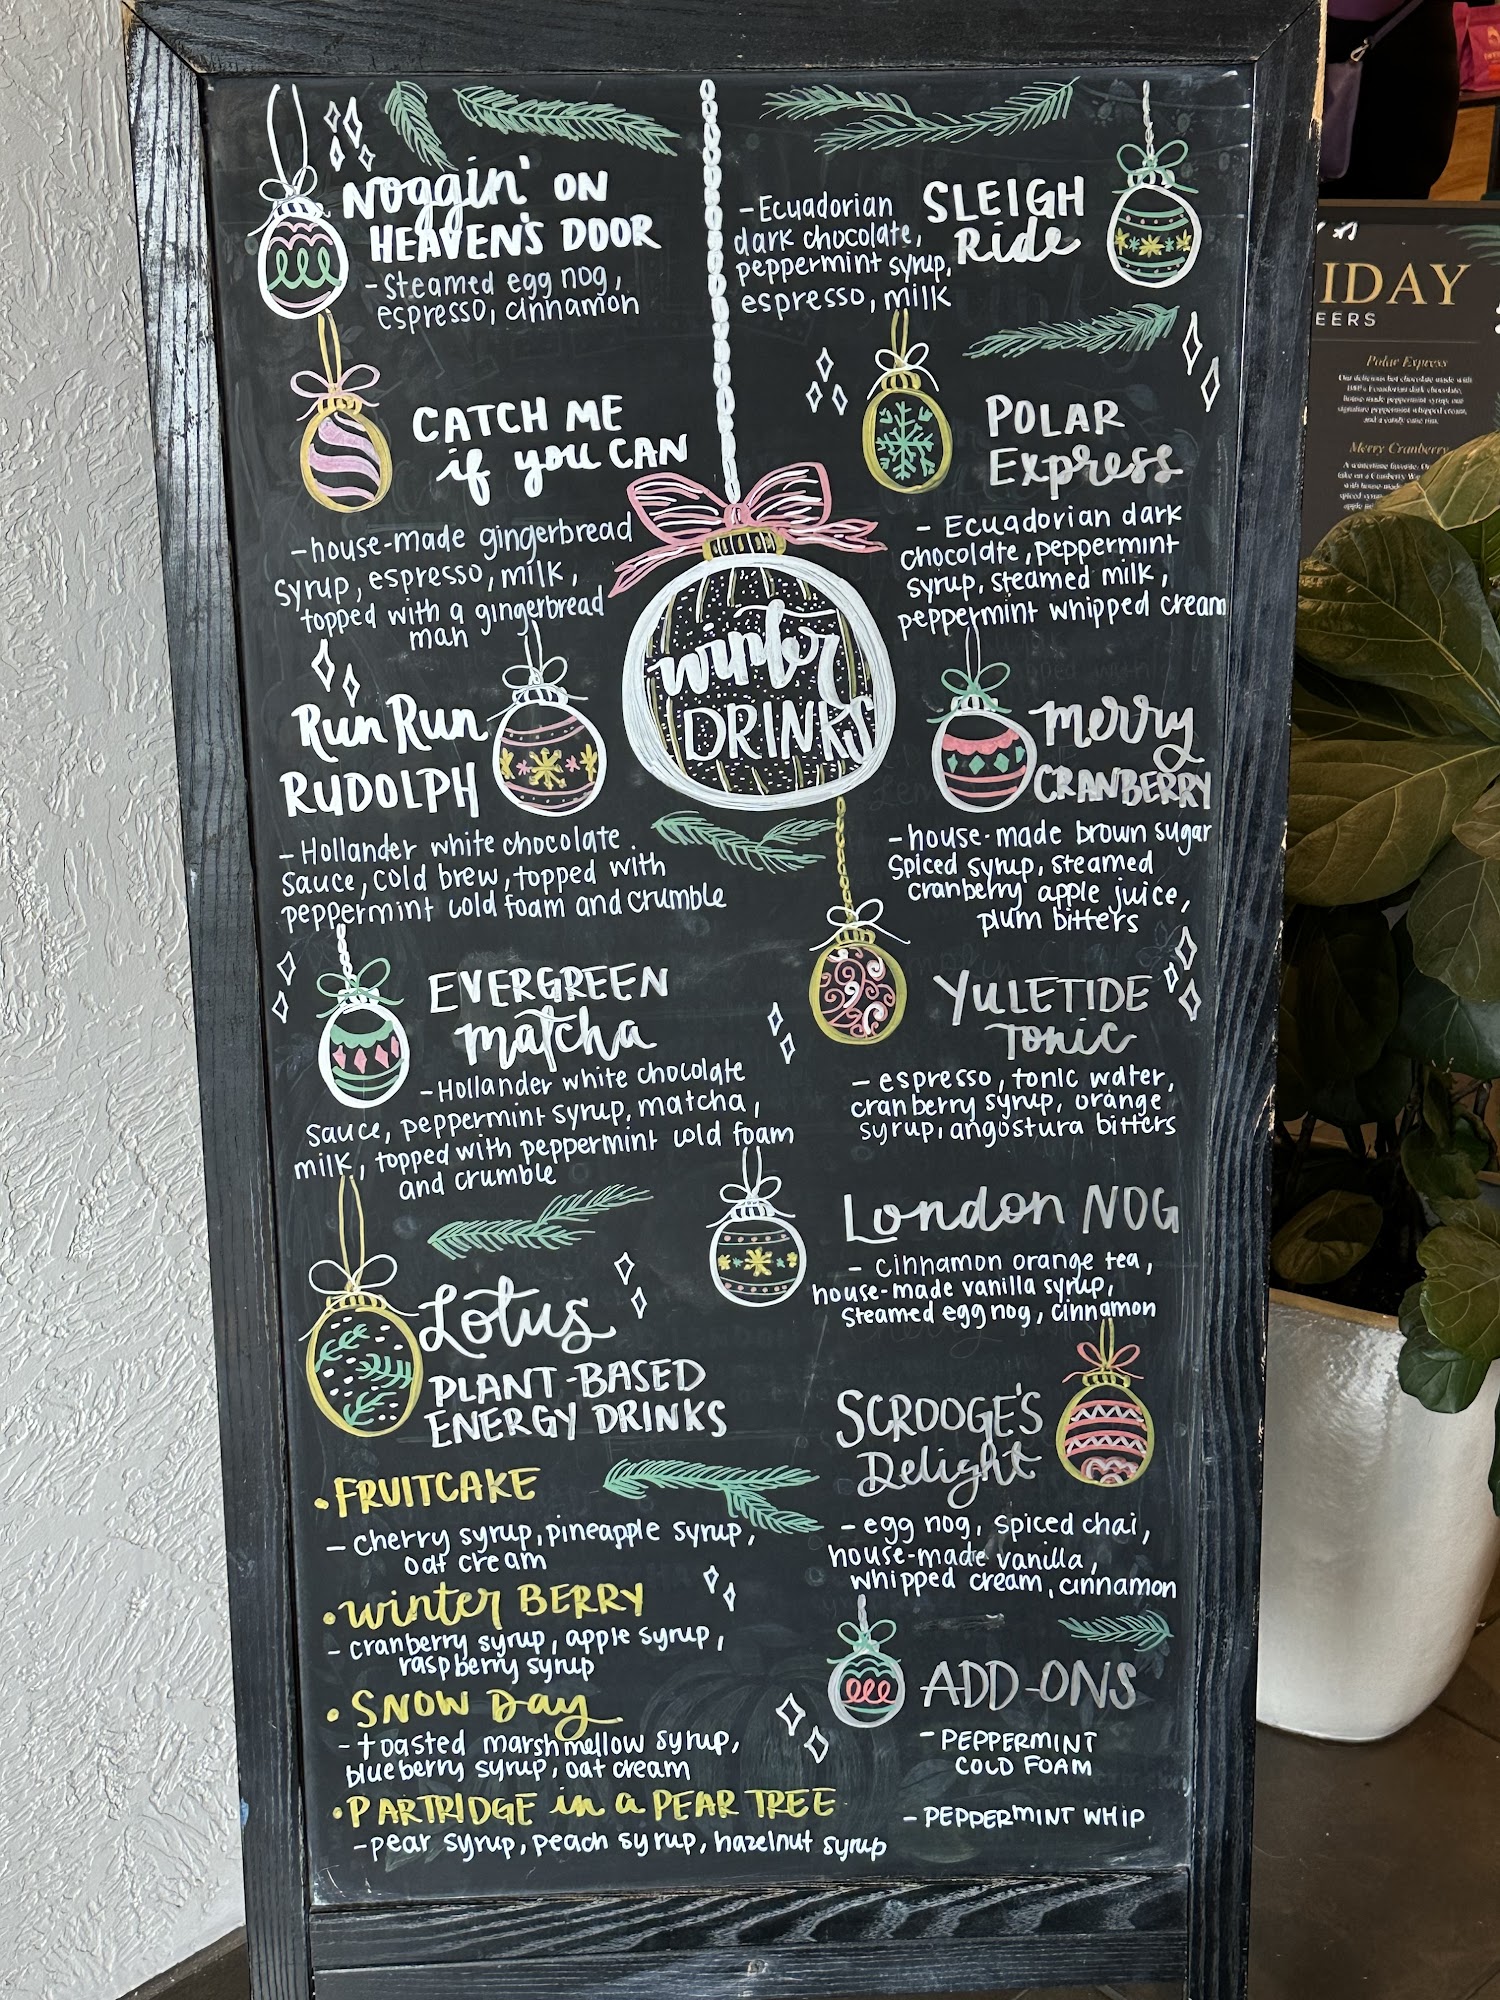 Noggin' ON
HEAVEN'S DOOR
- Steamed egg nog,
espresso, cinnamon
CATCH ME
if you CAN
- house-made gingerbread
syrup, espresso, milk,
topped with a gingerbread
man
Run Run
RUDOLPH
- Hollander white chocolate
sauce, cold brew, topped with
peppermint cold foam and crumble
EVERGREEN
matcha
- Hollander white chocolate
sauce, peppermint syrup, matcha,
milk, topped with peppermint cold foam
and crumble
Lotus
PLANT-BASED
ENERGY DRINKS
• FRUITCAKE
- cherry syrup, pineapple syrup,
oat cream
• winter BERRY
- cranberry syrup, apple syrup,
raspberry syrup
• SNOW Day
- toasted marshmellow syrup,
blueberry syrup, oat cream
• PARTRIDGE in a PEAR TREE
- pear syrup, peach syrup, hazelnut syrup
winter
DRINKS
SLEIGH
Ride
- Ecuadorian
dark chocolate,
peppermint syrup,
espresso, milk
POLAR
Express
- Ecuadorian dark
chocolate, peppermint
syrup, steamed milk,
peppermint whipped cream
merry
CRANBERRY
- house-made brown sugar
Spiced syrup, steamed
cranberry apple juice,
plum bitters
YULETIDE
Tonic
- espresso, tonic water,
cranberry syrup, orange
syrup, angostura bitters
London NOG
- cinnamon orange tea,
house-made vanilla syrup,
steamed egg nog, cinnamon
SCROOGE'S
Delight
- egg nog, spiced chai,
house-made vanilla,
whipped cream, cinnamon
ADD-ONS
- PEPPERMINT
COLD FOAM
- PEPPERMINT WHIP
IDAY
EERS
Polar Express
Our delicious hot chocolate made with
Ecuadorian dark chocolate,
house made peppermint syrup, our
signature peppermint whipped cream,
and a candy cane rim.
Merry Cranberry
A wintertime favorite.